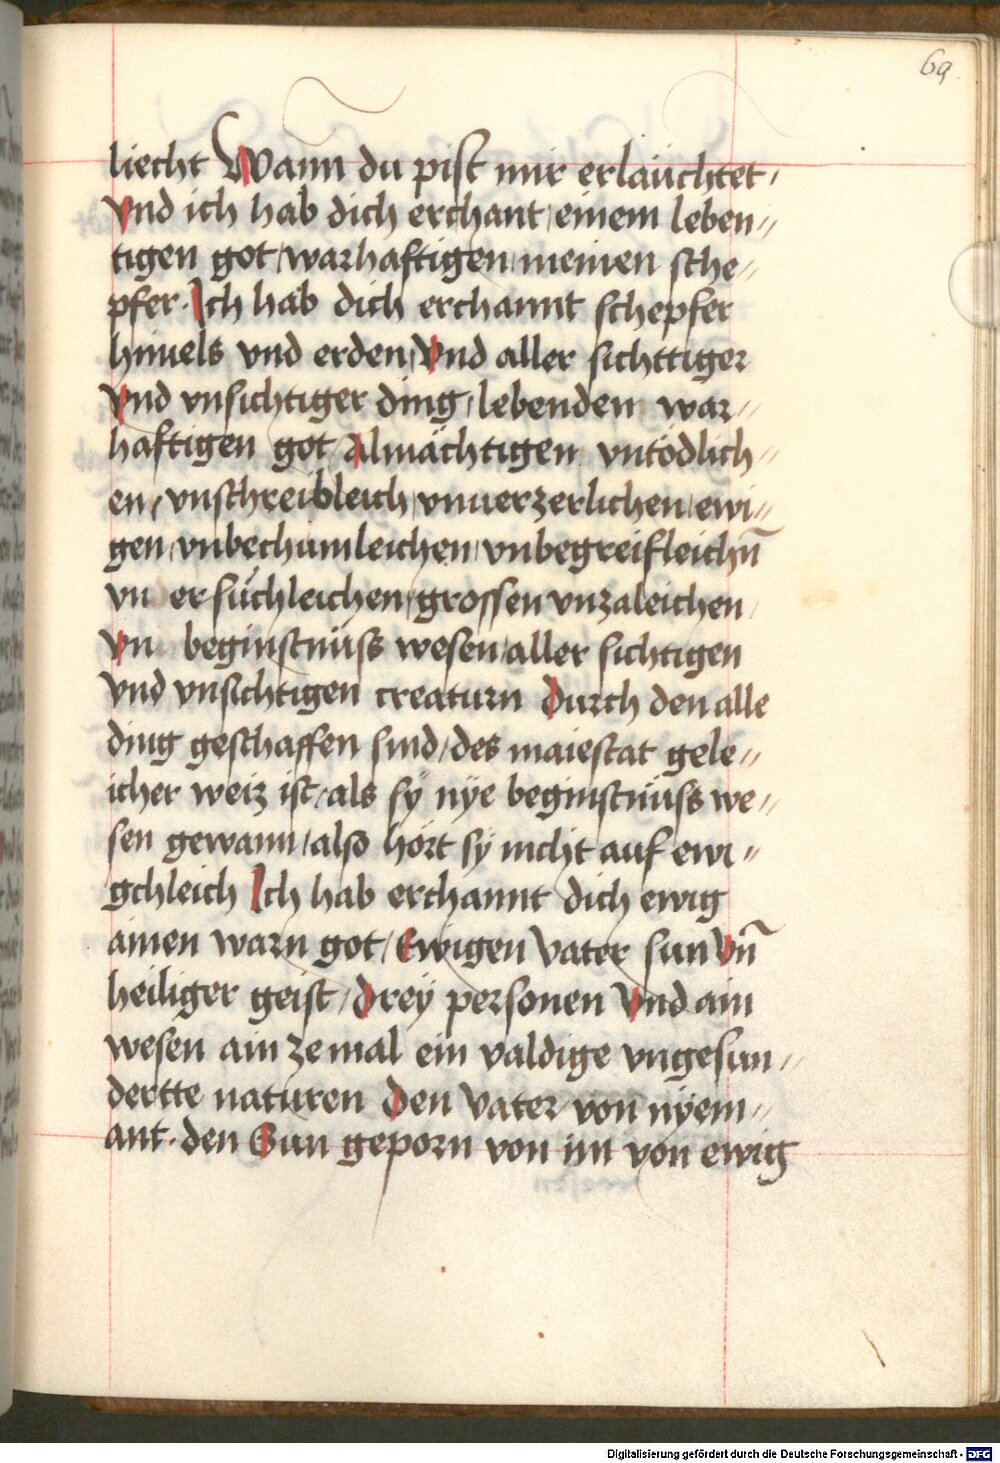 69
liecht Wann du pist mir erläuchtet,
Vnd ich hab dich erchant, einem leben„
tigen got, warhaftigen, meinen sche„
pfer. Ich hab dich erchannt schepfer
himels vnd erden, Vnd aller sichttiger
Vnd vnsichtiger ding, lebenden war„
haftigen got Almächtigen vntödlich„
en, vnschreibleich, vnuerzerlichen, ewi„
gen, vnbechumleichen, vnbegreifleichn̄
vn ersüchleichen, grossen vnzaleichen
Vn beginstnüss wesen, aller sichtigen
Vnd vnsichtigen creaturn Durch den alle
ding geschaffen sind, des maiestat gele„
icher weiz ist, als sÿ nÿe beginstnüss we„
sen gewann, also hört sÿ nicht auf ewi„
gchleich Ich hab erchannt dich ewig
ainen warn got, Ewigen Vater sun Vn̄
heiliger geist, Drey personen Vnd ain
wesen ain zemal ein valdige vngesun„
dertte naturen Den Vater von nÿem„
ant. den Sun geporn von im von ewig
Digitalisierung gefördert durch die Deutsche Forschungsgemeinschaft - DFG